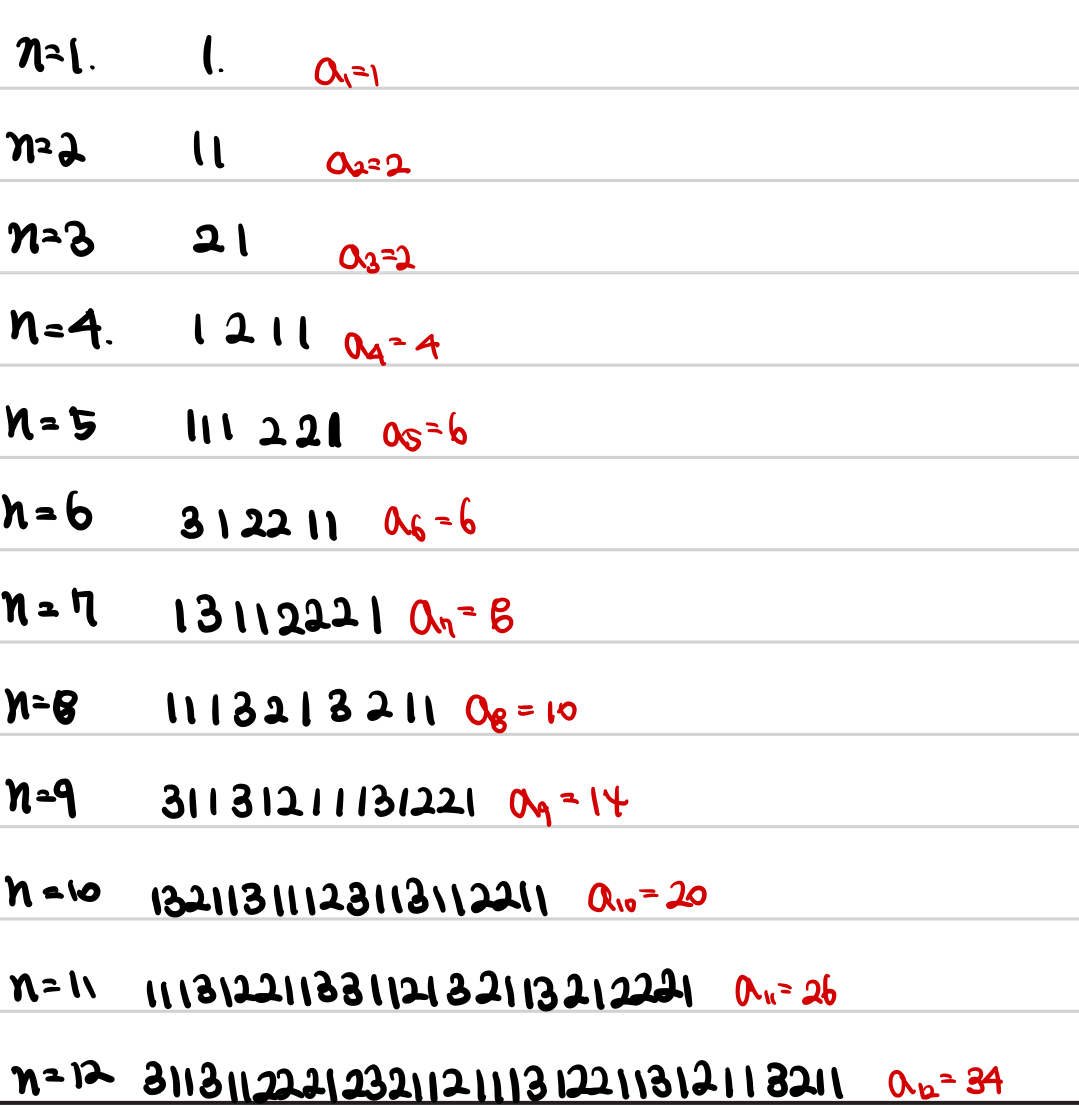 n=1. 1. a₁=1
n=2 11 a₂=2
n=3 21 a₃=2
n=4. 1211 a₄=4
n=5 111221 a₅=6
n=6 312211 a₆=6
n=7 13112221 a₇=8
n=8 1113213211 a₈=10
n=9 31131211131221 a₉=14
n=10 13211311123113112211 a₁₀=20
n=11 11131221133112132113212221 a₁₁=26
n=12 3113112221232112111312211312113211 a₁₂=34